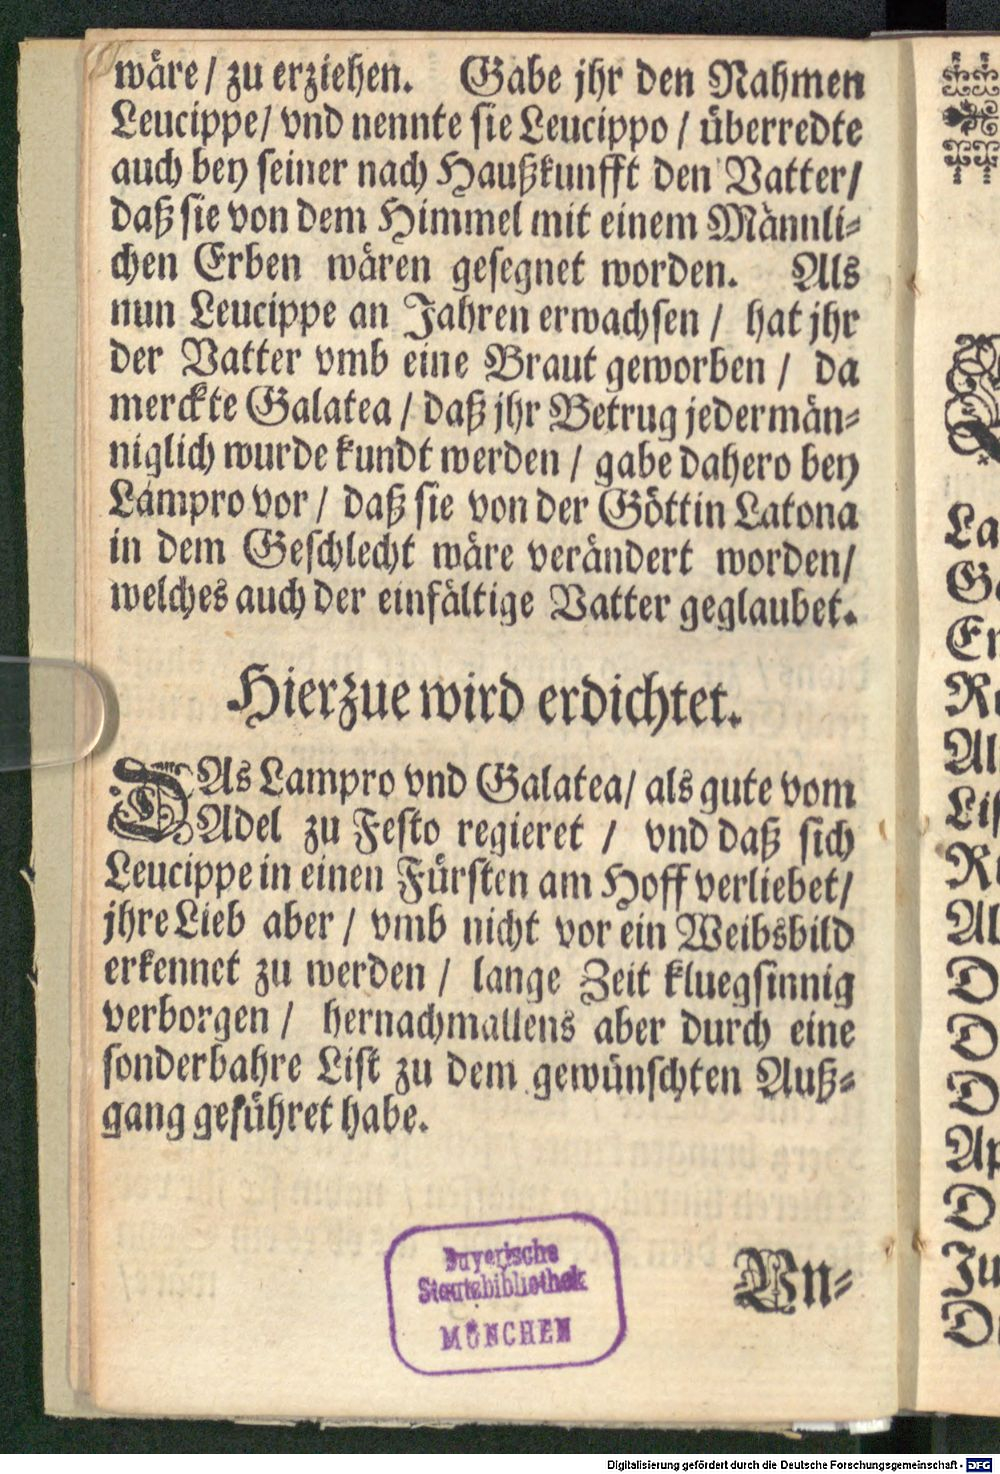 wäre / zu erziehen. Gabe jhr den Nahmen
Leucippe / vnd nennte sie Leucippo / überredte
auch bey seiner nach Haußkunfft den Vatter /
daß sie von dem Himmel mit einem Männli-
chen Erben wären gesegnet worden. Als
nun Leucippe an Jahren erwachsen / hat jhr
der Vatter vmb eine Braut geworben / da
merckte Galatea / daß jhr Betrug jedermän-
niglich wurde kundt werden / gabe dahero bey
Lampro vor / daß sie von der Göttin Latona
in dem Geschlecht wäre verändert worden /
welches auch der einfältige Vatter geglaubet.
Hierzue wird erdichtet.
DAs Lampro vnd Galatea / als gute vom
Adel zu Festo regieret / vnd daß sich
Leucippe in einen Fürsten am Hoff verliebet /
jhre Lieb aber / vmb nicht vor ein Weibsbild
erkennet zu werden / lange Zeit kluegsinnig
verborgen / hernachmallens aber durch eine
sonderbahre List zu dem gewünschten Auß-
gang geführet habe.
Vn-
Bayerische
Staatsbibliothek
MÜNCHEN
La
Ge
En
Al
Lis
Al
O
O
O
Ap
O
Ju
Digitalisierung gefördert durch die Deutsche Forschungsgemeinschaft - DFG